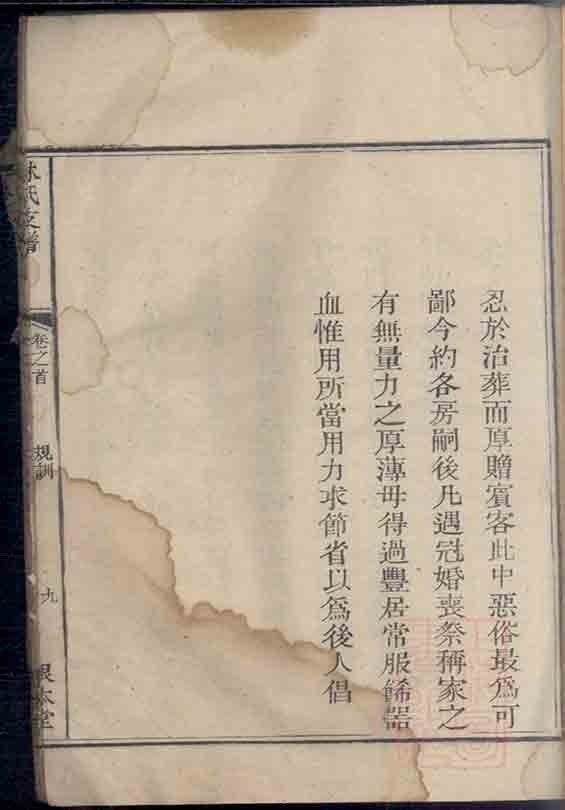 忍於治葬而厚贈賓客此中惡俗最爲可
鄙今約各房嗣後凡遇冠婚喪祭稱家之
有無量力之厚薄毋得過豐居常服餙器
血惟用所當用力求節省以爲後人倡
林氏支譜
卷之首
規訓
九
根本堂